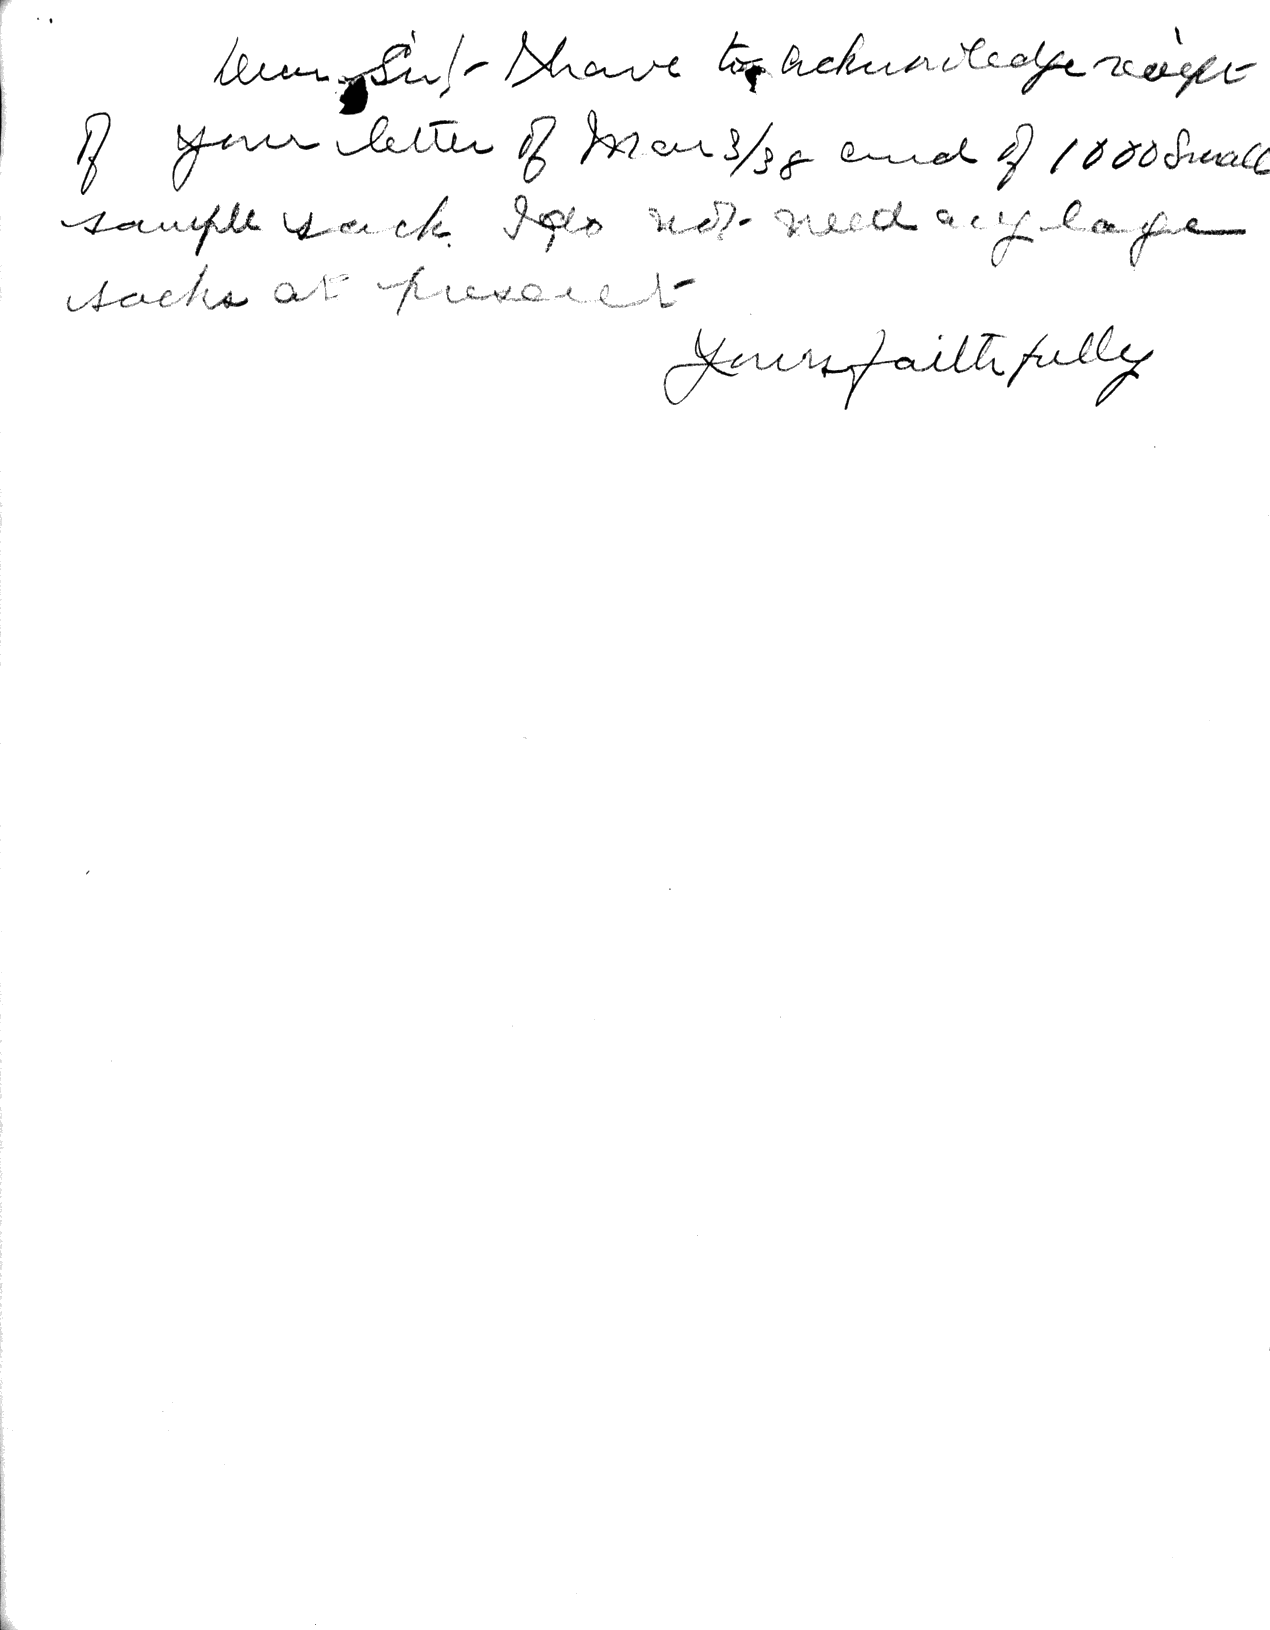 Dear Sir/- I have to acknowledge reciept
of your letter of Mar 3/38 and of 1000 Small
sample sack. I do not need any large
sacks at present
Yours faithfully